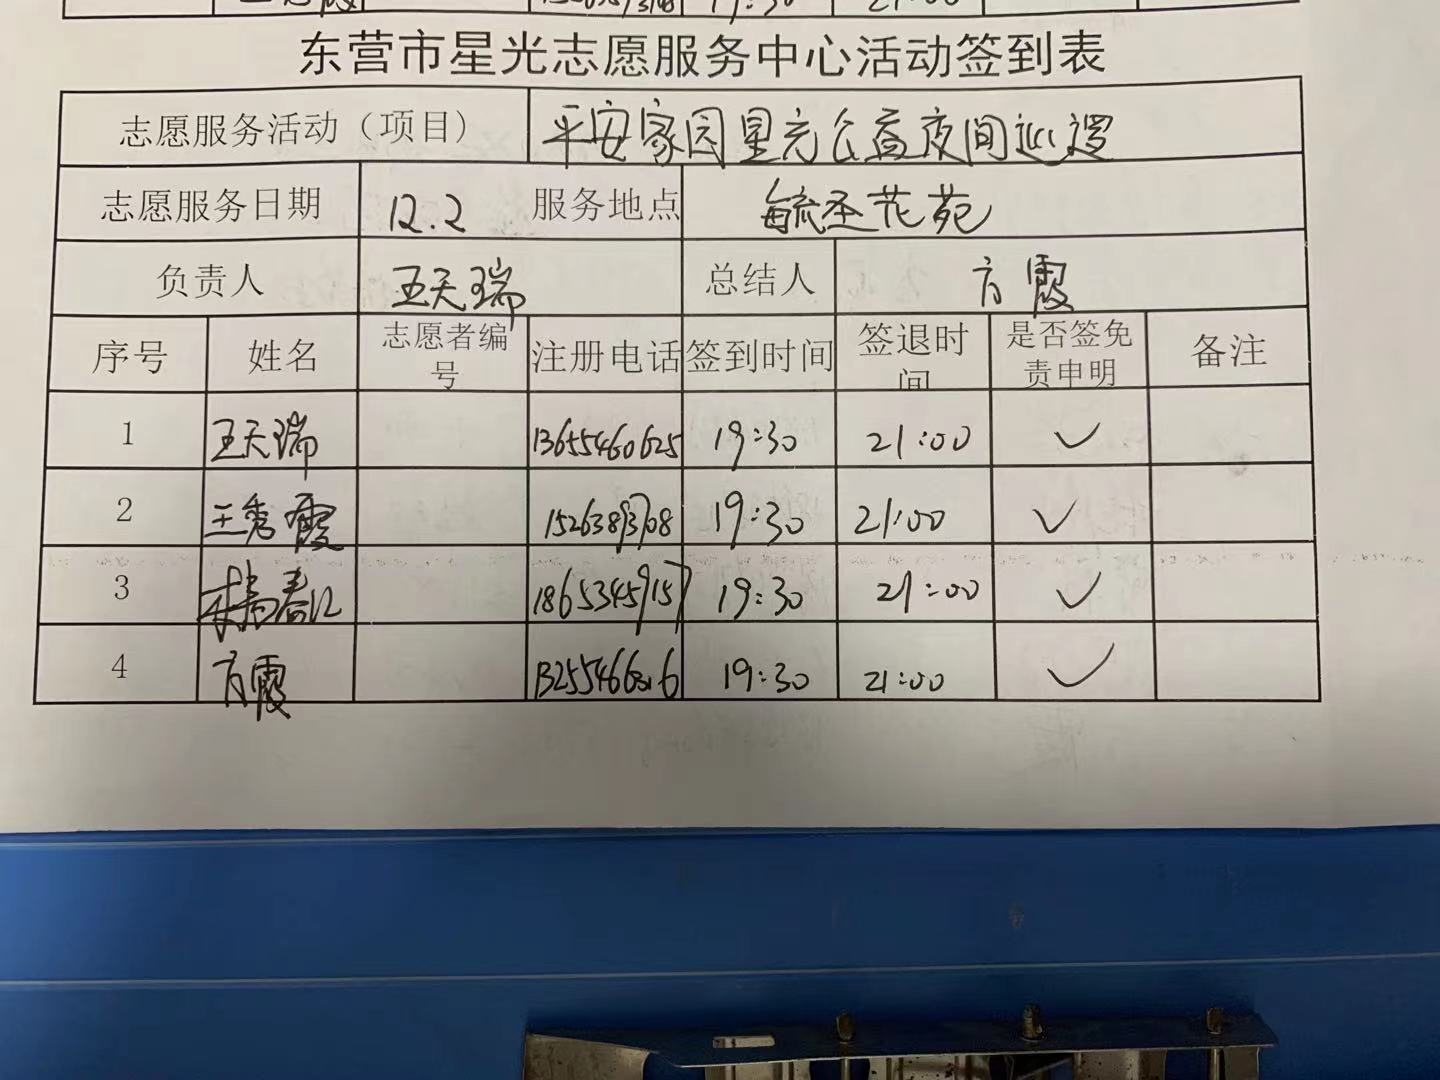 19:30 21:00
东营市星光志愿服务中心活动签到表
志愿服务活动（项目） 平安家园星光公益夜间巡逻
志愿服务日期 12.2 服务地点 毓圣花苑
负责人 王天瑞 总结人 方霞
序号 姓名 志愿者编号 注册电话 签到时间 签退时间 是否签免责申明 备注
1 王天瑞 13655460625 19:30 21:00 ✓
2 王秀霞 15263893708 19:30 21:00 ✓
3 春江 18653459157 19:30 21:00 ✓
4 方霞 19:30 21:00 ✓